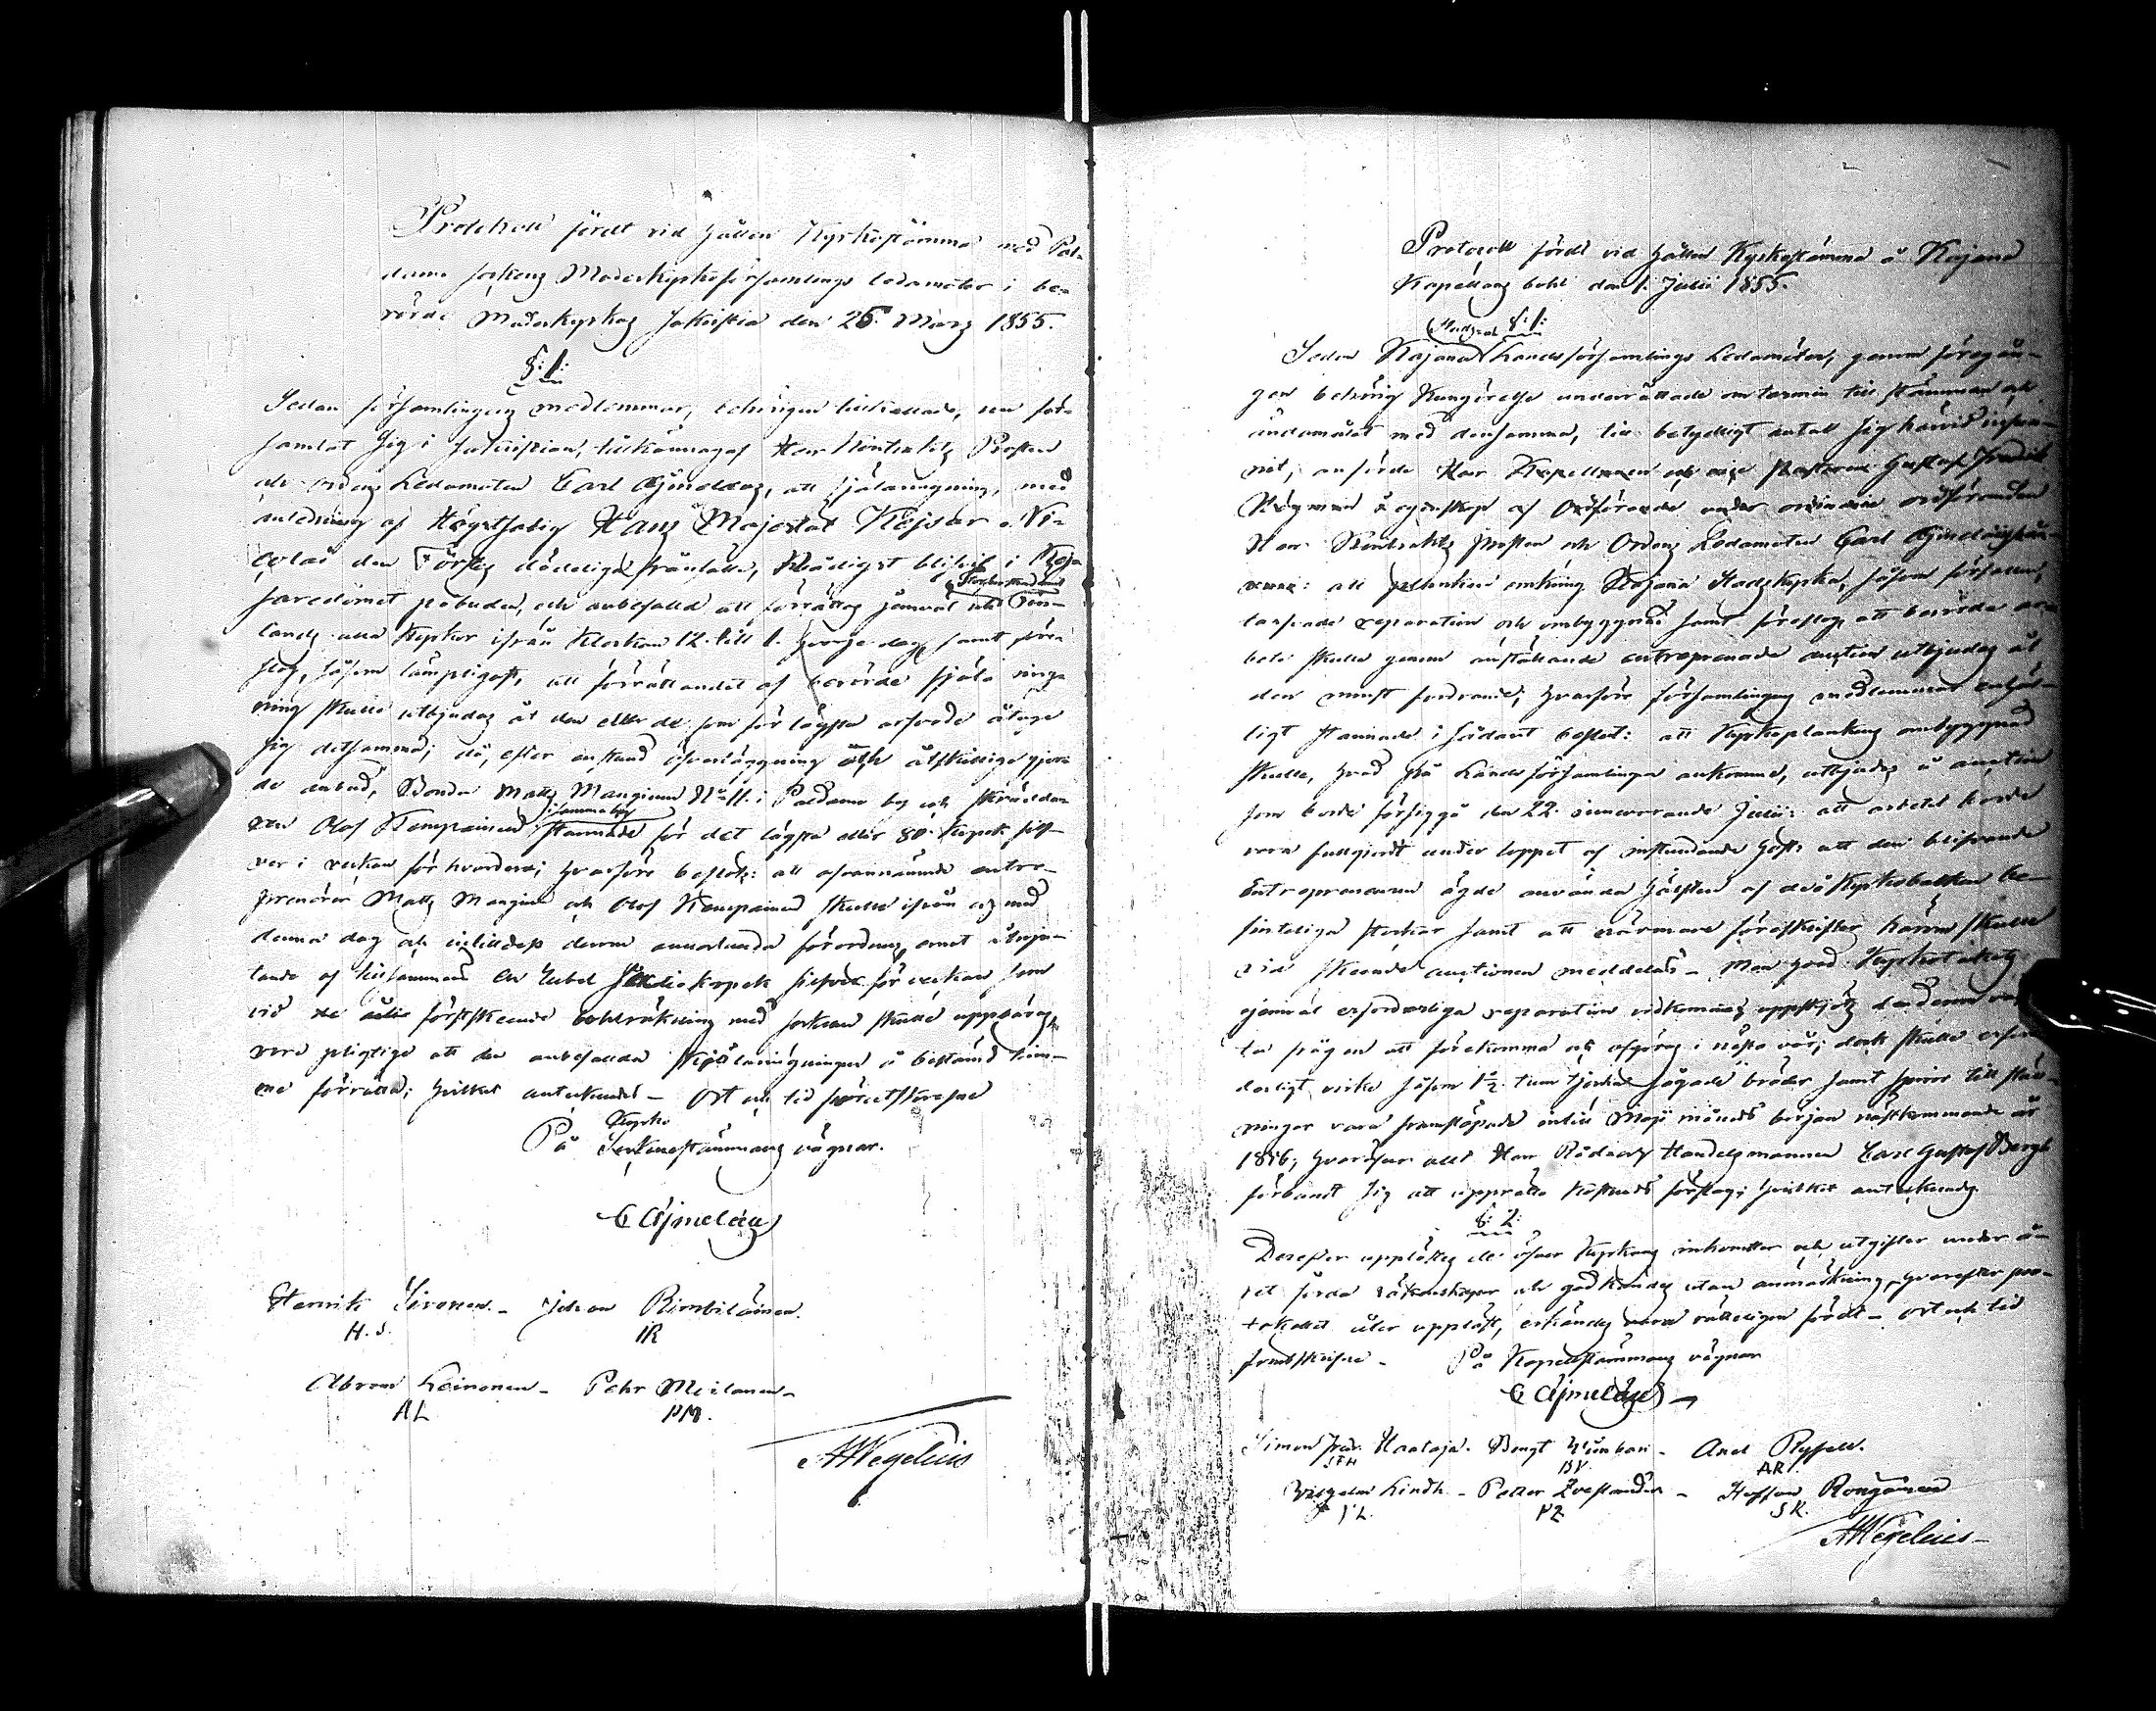 Protokoll fördt vid hållen Kyrkostämma med Pal-
damo sockens Moderkyrkoförsamlings ledamöter i be-
rörde Moderkyrkas Sakristia den 25. Mars 1855.
§: 1:
Sedan församlingens medlemmar, behörigen tillkallade, sig för-
samlat sig i sakristian, tillkännagaf Herr Kontrakts Prosten
och Ordens Ledamoten Carl Ajmelæus, att själaringning, med
anledning af Högstsalig Hans Majestät Kejsar Ni-
colai den Förstes dödeliga frånfälle, Nådigst blifvit i Kejsa-
Storfurstendömet
saredömet påbuden, och anbefalld att förrättas jemväl uti Fin-
lands alla Kyrkor ifrån Klockan 12. till 1. hvarje dag, samt före-
slog, såsom lämpligast, att förrättandet af berörde själa ring-
ning skulle utbjudas åt den eller de som för lägsta arfvode åtoge
sig detsamma; då, efter enskild öfverläggning och åtskillige gjor-
de anbud, Bonden Matts Manginen No 11. i Paldamo by och Skrädda-
samma by
ren Olof Kempainen stannade för det lägsta eller 80. kopek silf-
ver i veckan för hvardera; hvarföre beslöts: att ofvannämnde entre-
prenörer Matts Manginen och Olof Kempainen skulle ifrån och med
denna dag och intilldess derom annorlunda förordnas, emot åtnju-
tande af tillsammans En Rubel Sextio kopek silfver för veckan som
vid de först skeende bohlräkning med socknen skulle uppbäras,
vara pligtige att den anbefallda Själaringningen å bestämd tim-
me förrätta; hvilket antecknades – Ort och tid förutskrefne
Kyrko
På Sockenstämmans vägnar.
C Ajmelæus
Henrik Sironen – Johan Rimbiläinen.
H.S. IR
Abram Leinonen – Pehr Meilanen –
AL PM.
AWegelius
Protocoll fördt vid hållen Kyrkostämma å Kajana
Kapellans bohl den 1. Julii 1855.
Stads- och §: 1:
Sedan Kajana Landsförsamlings Ledamöter, genom föregån-
gen behörig Kungörelse underrättade om termin till stämman och
ändamålet med densamma, till betydligt antal sig härvid infun-
nit, anförde Herr Kapellanen och vice Pastorn Gustaf Fredrik
Högman i egenskap af Ordförande under ordinarie ordföranden
Herr Kontrakts Prosten och Ordens Ledamoten Carl Ajmelæi
att planken omkring Kajana Stadskyrka, såsom förfallen,
tarfvade reparation och ombyggnad samt föreslog att berörde ar-
bete skulle genom anställande entreprenade auction utbjudas åt
den minst fordrande; hvarföre församlingens medlemmar enhäl-
ligt stannade i sådant beslut: att Kyrkoplankens ombyggnad
skulle, hvad på Landsförsamlingen ankomme, utbjudas å auction
som borde försiggå den 22. innevarande Julii: att arbetet borde
vara fullgjordt under loppet af instundande höst: att den blifvande
Entreprenören ägde använda hälften af de å Kyrkobacken be-
finteliga stockar samt att närmare föreskrifter härom skulle
vid skeende auctionen meddelas – Men hvad Kyrkotakets
jemväl erforderliga reparation vidkommer uppskjöts
ta frågan att förekomma och afgöras i nästa vår; dock skulle erfor-
derligt virke såsom 1 1/2. tum tjocka sågade bräder samt
ningar vara framsläpade intill Maji månads början nästkommande år
1856; hvaröfver allt Herr Rådman Handelsmannen Carl Gustaf Bergh
förbandt sig att upprätta kostnads förslag; hvilket antecknades.
§: 2:
Derefter upplästes de öfver Kyrkans inkomster och utgifter under å-
ret förda räkenskaper och godkändes utan anmärkning, hvarefter pro-
tokollet äfven uppläst, erkändes vara rätteligen fördt – Ort och tid
förutskrifne – På Kapellstämmans vägnar
C Ajmelæus –
Simon Fredr. Haataja. Bengt – Axel Ryssell.
SFH BV. AR.
Wilhelm Lindh – Petter – Staffan Rongainen
L. PZ SR.
AWegelius –